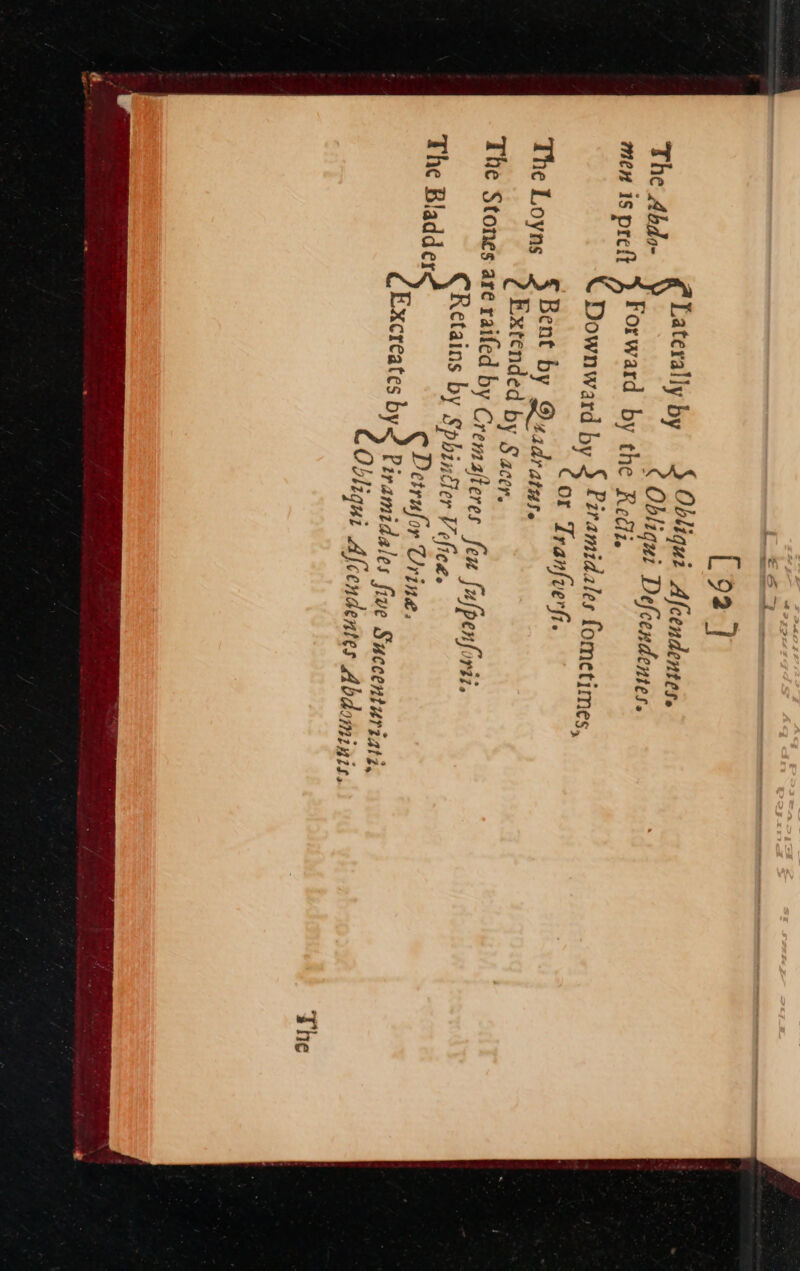 [ 92 ]
Laterally by { Obliqui Ascendentes.
{ Obliqui Descendentes.
The Abdo-
men is prest { Forward by the Recti.
Downward by { Piramidales sometimes,
{ or Transversi.
The Loyns { Bent by Quadratus.
{ Extended by Sacer.
The Stones are raised by Cremasteres seu suspensorii.
{ Retains by Sphincter Vesicæ.
The Bladder
{ Detrusor Urinæ.
{ Excreates by { Piramidales sive Succenturiati,
{ Obliqui Ascendentes Abdominis.
The